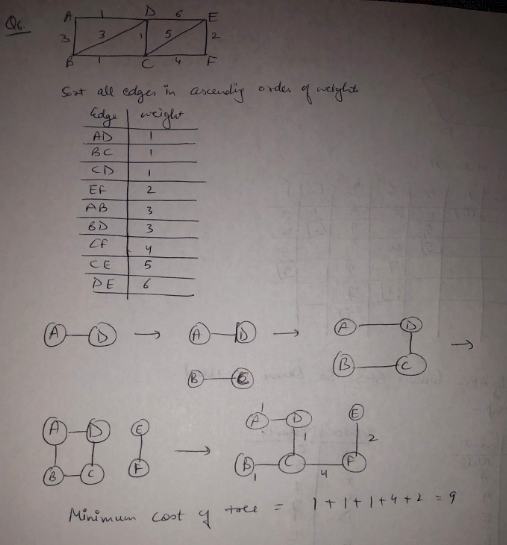 Q6.
A 1 D 6 E
3 3 1 5 2
B 1 C 4 F
Sort all edges in ascending order of weights
Edge weight
AD 1
BC 1
CD 1
EF 2
AB 3
BD 3
CF 4
CE 5
DE 6
A D → A D → A D →
B C B C
A D E → A D E
B C F B C F
1 1 2 1 4
Minimum cost of tree = 1+1+1+4+2 = 9